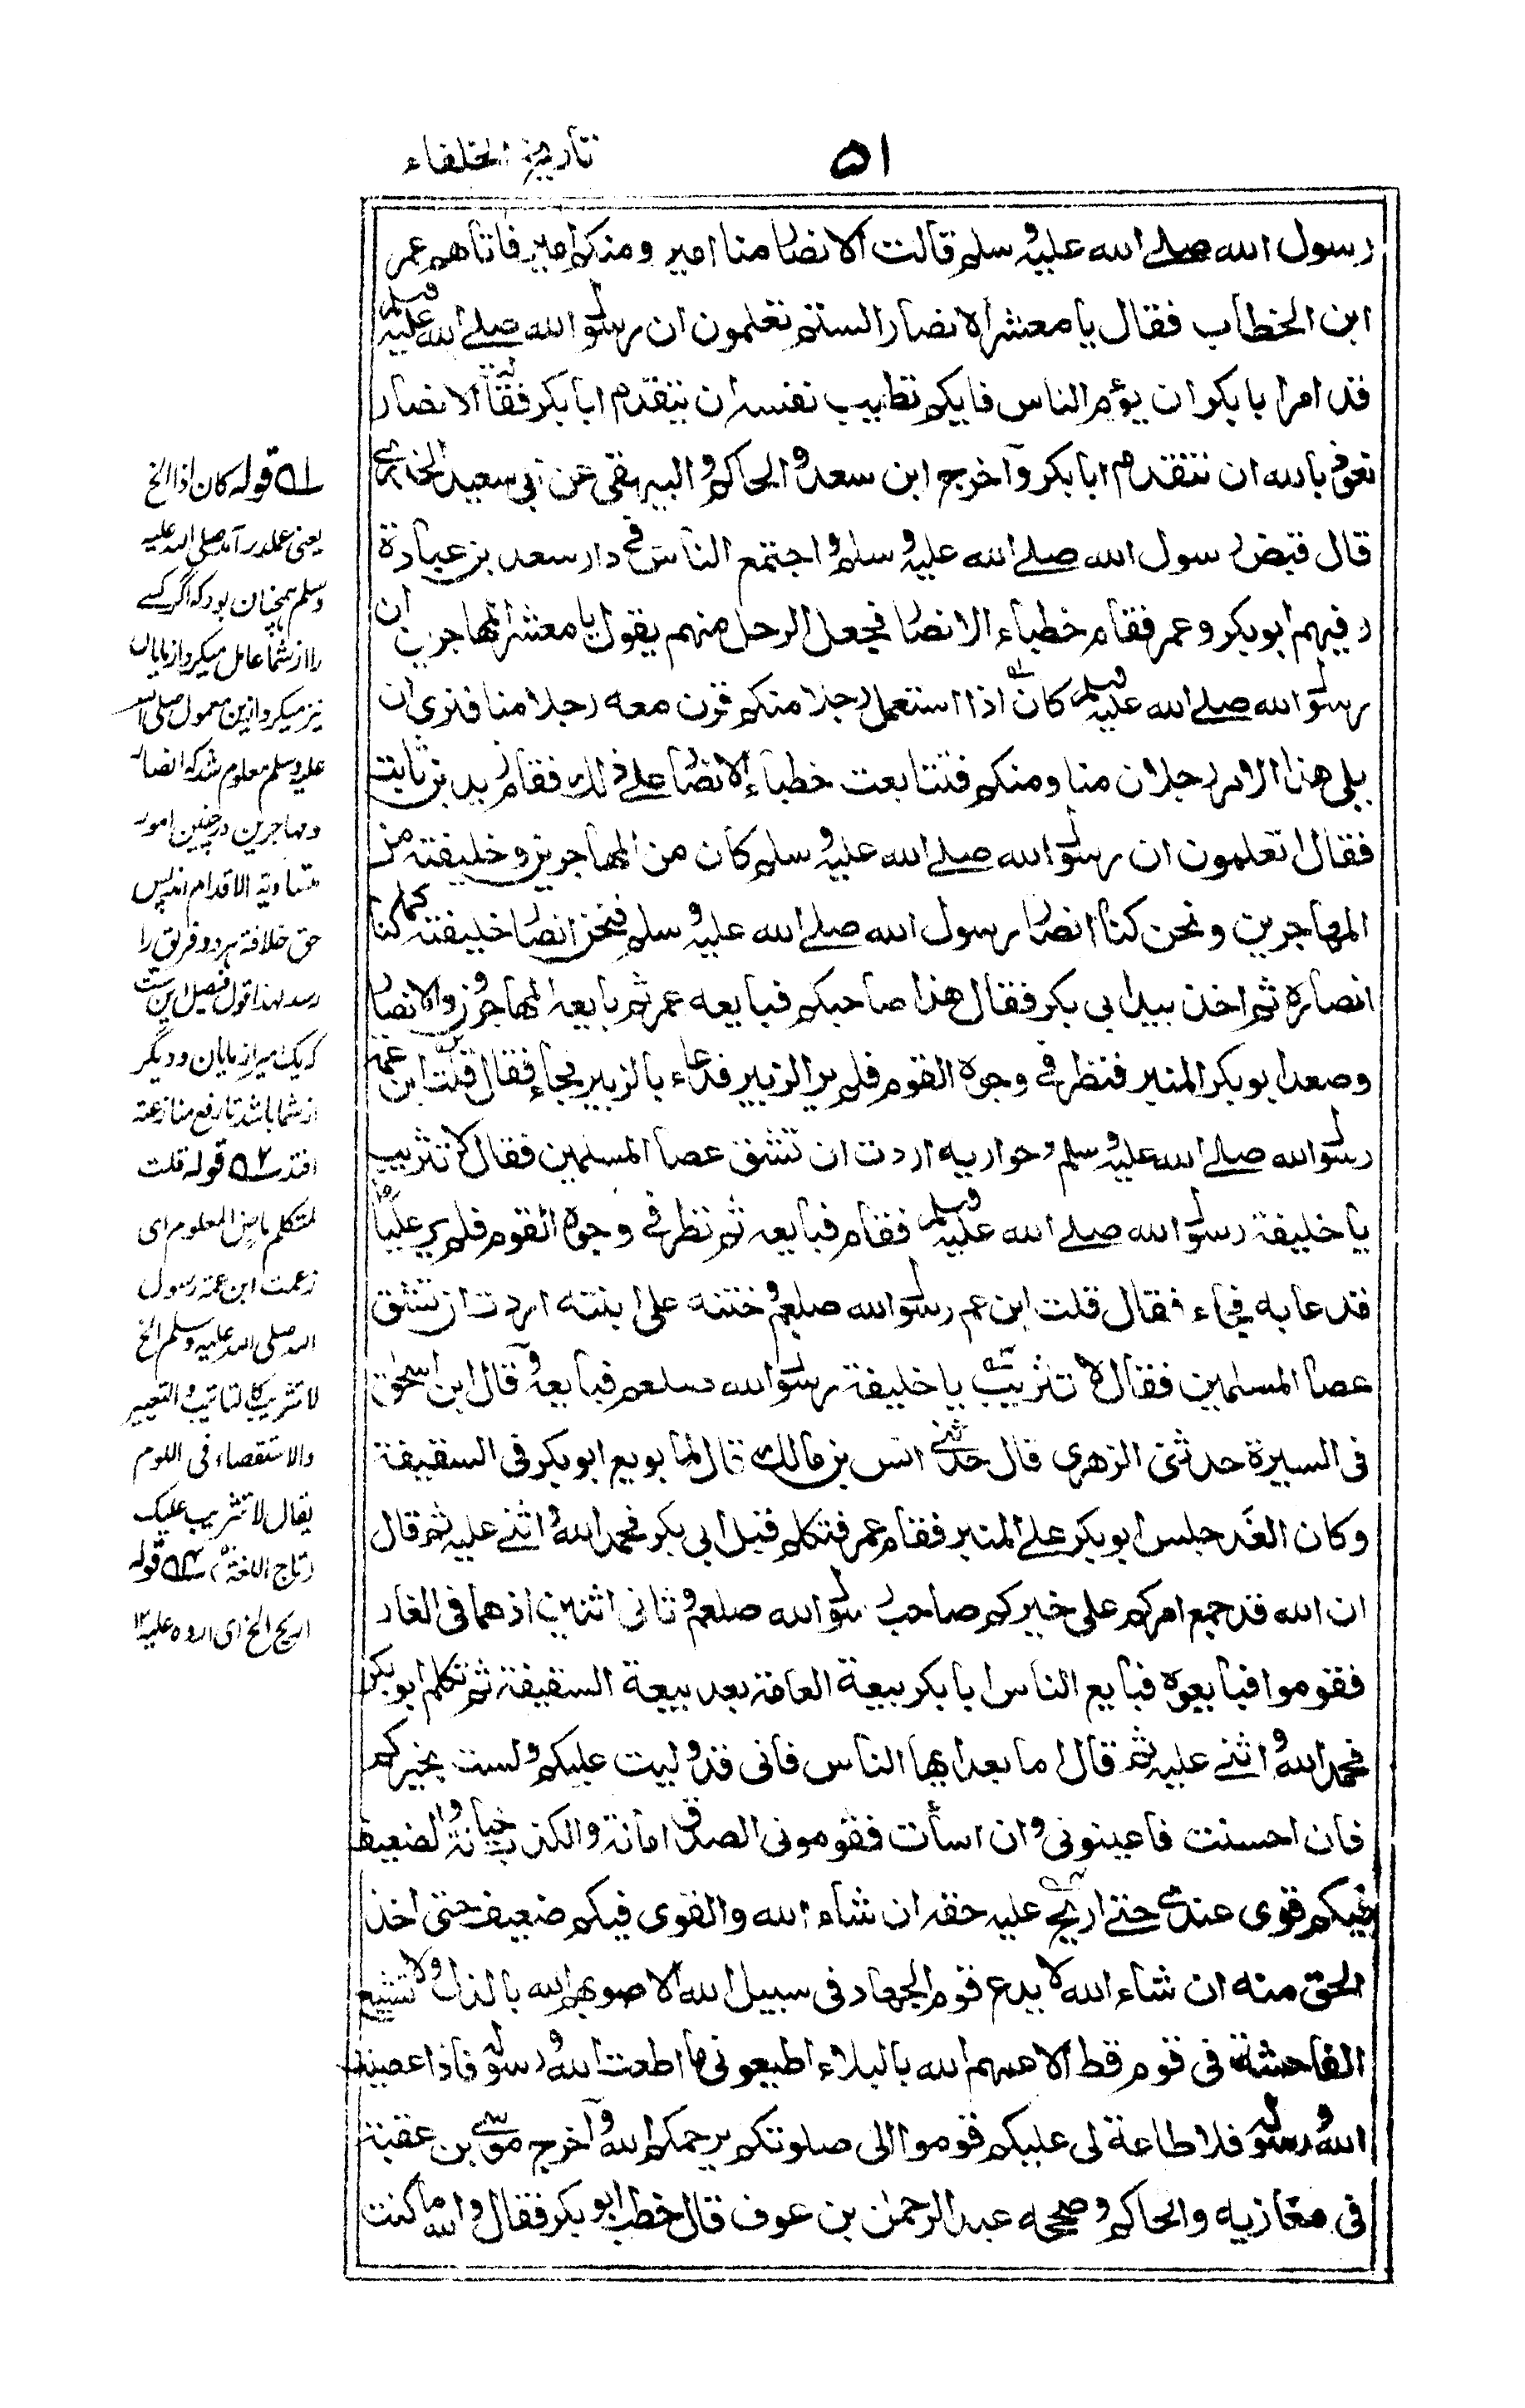 ٥١
تأريخ الخلفاء
رسول الله صلے الله عليه وسلم قالت الانصار منا امير ومنكم امير فاتاهم عمر
ابن الخطاب فقال يا معشر الانصار الستم تعلمون ان رسول الله صلے الله عليه وسلم
قد امر ابا بكر ان يؤم الناس فايكم تطيب نفسه ان يتقدم ابا بكر فقالت الانصار
نعوذ بالله ان نتقدم ابا بكر وآخرج ابن سعد والحاكم والبيهقي عن ابي سعيد الخدري
قال قبض رسول الله صلے الله عليه وسلم واجتمع الناس في دار سعد بن عبادة
وفيهم ابو بكر وعمر فقام خطباء الانصار فجعل الرجل منهم يقول يا معشر المهاجرين ان
رسول الله صلے الله عليه وسلم كان اذا استعمل رجلا منكم قرن معه رجلا منا فنرى ان
يلى هذا الامر رجلان منا ومنكم فتتابعت خطباء الانصار على ذلك فقام زيد بن ثابت
فقال اتعلمون ان رسول الله صلے الله عليه وسلم كان من المهاجرين وخليفته من
المهاجرين ونحن كنا انصار رسول الله صلے الله عليه وسلم فنحن انصار خليفته كما كنا
انصاره ثم اخذ بيد ابي بكر فقال هذا صاحبكم فبايعه عمر ثم بايعه المهاجرون والانصار
وصعد ابو بكر المنبر فنظر في وجوه القوم فلم ير الزبير فدعاء بالزبير فجاء فقال قلت ابن عمة
رسول الله صلے الله عليه وسلم وحواريه اردت ان تشق عصا المسلمين فقال لا تثريب
يا خليفة رسول الله صلے الله عليه وسلم فقام فبايعه ثم نظر في وجوه القوم فلم ير عليا
فدعا به فجاء فقال قلت ابن عم رسول الله صلعم وختنه على ابنته اردت ان تشق
عصا المسلمين فقال لا تثريب يا خليفة رسول الله صلعم فبايعه وقال ابن اسحٰق
فى السيرة حدثنى الزهرى قال حدثنى انس بن مالك قال لما بويع ابو بكر فى السقيفة
وكان الغد جلس ابو بكر على المنبر فقام عمر فتكلم قبل ابى بكر فحمد الله واثنى عليه ثم قال
ان الله قد جمع امركم على خيركم صاحب رسول الله صلعم وثانى اثنين اذ هما فى الغار
فقوموا فبايعوه فبايع الناس ابا بكر بيعة العامة بعد بيعة السقيفة ثم تكلم ابو بكر
فحمد الله واثنى عليه ثم قال اما بعد ايها الناس فانى قد وليت عليكم ولست بخيركم
فان احسنت فاعينونى وان اسأت فقومونى الصدق امانة والكذب خيانة والضعيف
فيكم قوى عندى حتى اريح عليه حقه ان شاء الله والقوى فيكم ضعيف حتى اخذ
الحق منه ان شاء الله لا يدع قوم الجهاد فى سبيل الله الا ضربهم الله بالذل ولا تشيع
الفاحشة فى قوم قط الا عمهم الله بالبلاء اطيعونى ما اطعت الله ورسوله فاذا عصيت
الله ورسوله فلا طاعة لى عليكم قوموا الى صلوتكم يرحمكم الله وآخرج موسى بن عقبة
فى مغازيه والحاكم وصححه عبد الرحمٰن بن عوف قال خطب ابو بكر فقال والله ما كنت
٥١ قوله كان اذا الخ
يعنى عملدرآمد صلى الله عليه
وسلم همچنان بود كه اگر كسے
را از شما عامل ميكرد از مايان
نيز ميكرد ازين معمول صلى الله
عليه وسلم معلوم شد كه انصار
ومهاجرين در چنين امور
متساوية الاقدام اند پس
حق خلافة هر دو فريق را
رسد لهذا قول فيصل اين است
كه يك مير از مايان وديگر
از شما باشد تا رفع منازعة
افتد ٥٢ قوله قلت
لمتكلم ماض المعلوم اى
زعمت ابن عمة رسول
الله صلى الله عليه وسلم الخ
لا تثريب كالتانيب والتعيير
والاستقصاء فى اللوم
يقال لا تثريب عليك
(تاج اللغة) ٥٣ قوله
اريح الخ اى اروه عليه ١٢